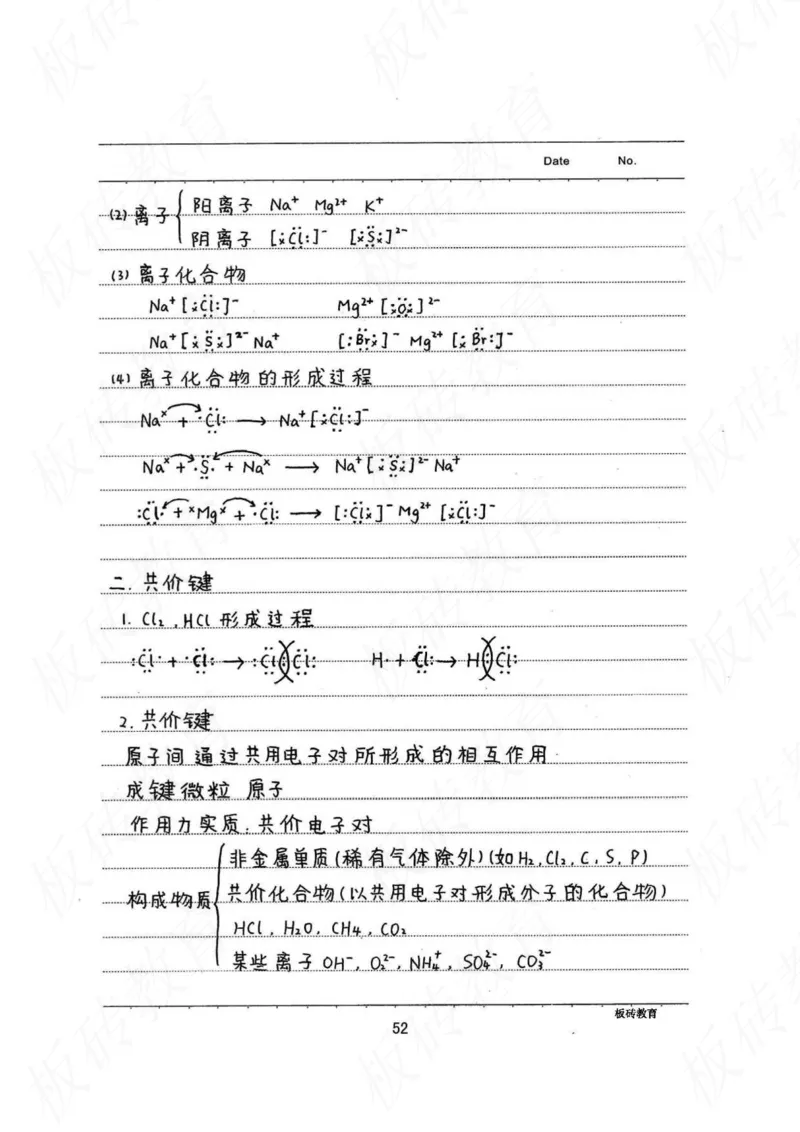 Date No.
(2) 离子 { 阳离子 Na⁺ Mg²⁺ K⁺
阴离子 [:Cl:]⁻ [:S:]²⁻
(3) 离子化合物
Na⁺[:Cl:]⁻ Mg²⁺[:O:]²⁻
Na⁺[:S:]²⁻Na⁺ [:Br:]⁻Mg²⁺[:Br:]⁻
(4) 离子化合物的形成过程
Na× + ·Cl: → Na⁺[:Cl:]⁻
Na× + ·S· + Na× → Na⁺[:S:]²⁻Na⁺
:Cl· + ×Mg× + ·Cl: → [:Cl:]⁻Mg²⁺[:Cl:]⁻
二. 共价键
1. Cl₂, HCl 形成过程
:Cl· + ·Cl: → :Cl:Cl: H· + ·Cl: → H:Cl:
2. 共价键
原子间通过共用电子对所形成的相互作用
成键微粒 原子
作用力实质: 共价电子对
构成物质 { 非金属单质(稀有气体除外)(如H₂, Cl₂, C, S, P)
共价化合物(以共用电子对形成分子的化合物)
HCl, H₂O, CH₄, CO₂
某些离子 OH⁻, O₂²⁻, NH₄⁺, SO₄²⁻, CO₃²⁻
板砖教育
52